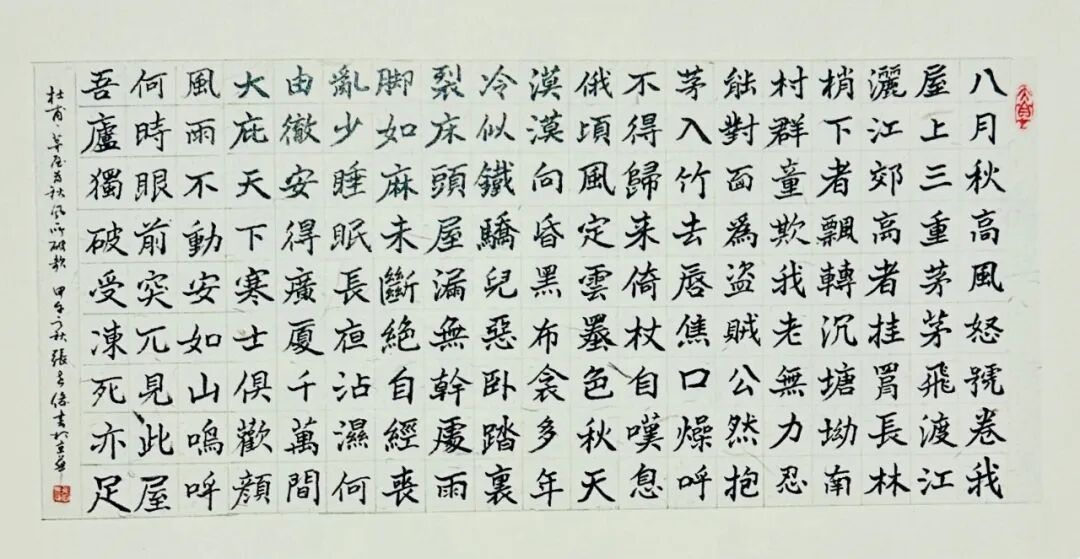 八月秋高風怒號卷我
屋上三重茅茅飛渡江
灑江郊高者挂罥長林
梢下者飄轉沉塘坳南
村群童欺我老無力忍
能對面爲盜賊公然抱
茅入竹去唇焦口燥呼
不得歸来倚杖自嘆息
俄頃風定雲墨色秋天
漠漠向昏黑布衾多年
冷似鐵驕兒惡卧踏裏
裂床頭屋漏無幹處雨
脚如麻未斷絕自經喪
亂少睡眠長夜沾濕何
由徹安得廣厦千萬間
大庇天下寒士俱歡顔
風雨不動安如山嗚呼
何時眼前突兀見此屋
吾廬獨破受凍死亦足
杜甫茅屋为秋風所破歌 甲午 秋張 書於